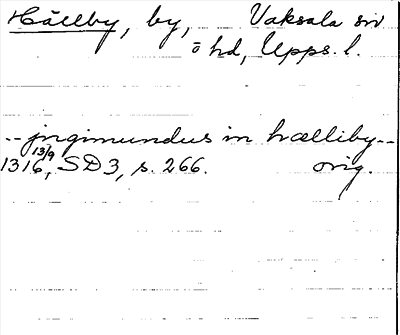 Hällby, by, Vaksala sn
ö hd, Upps. l.
-- jngimundus in hælliby --
1316 13/9, SD 3, s. 266. orig.